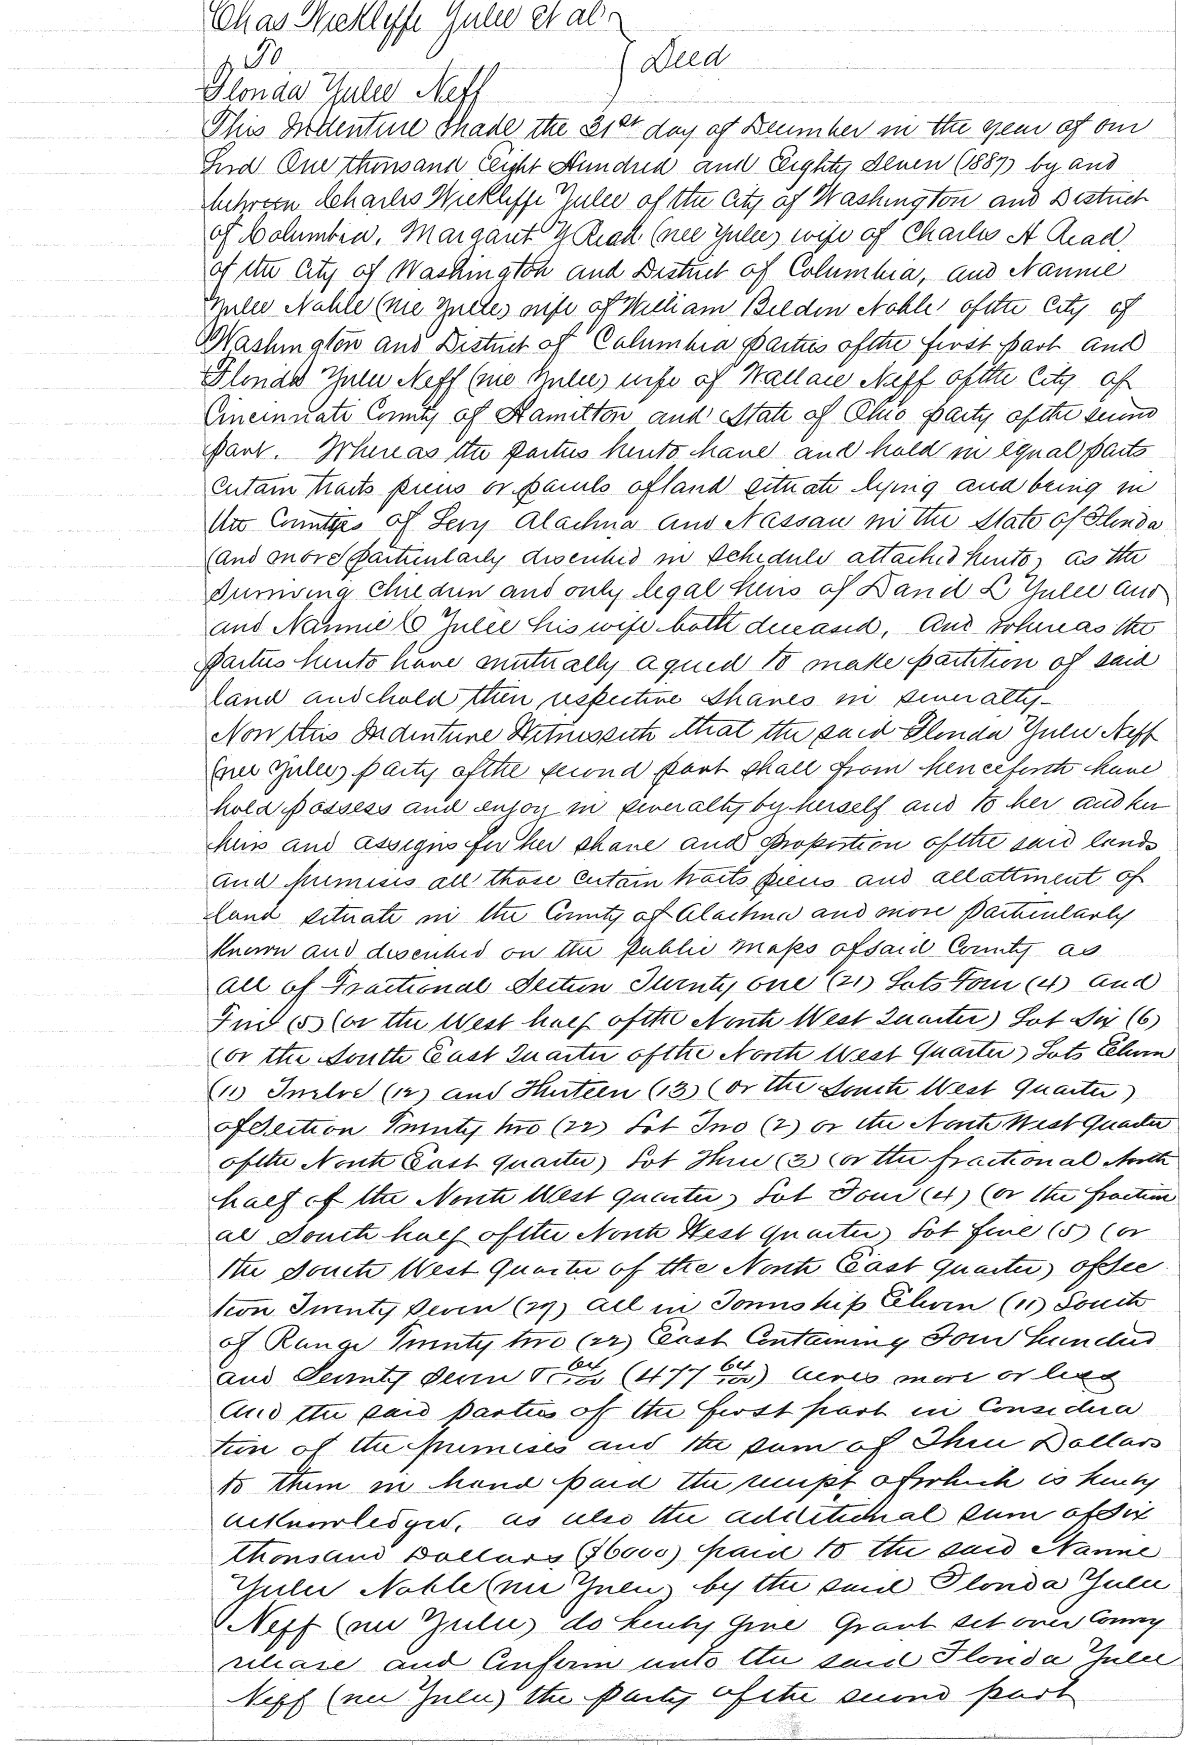 Chas Wickliffe Yulee et al
To } Deed
Florida Yulee Neff
This Indenture made the 31st day of December in the year of our
Lord One thousand Eight Hundred and Eighty Seven (1887) by and
between Charles Wickliffe Yulee of the City of Washington and District
of Columbia, Margaret Y Read (nee Yulee) wife of Charles A Read
of the City of Washington and District of Columbia, and Nannie
Yulee Noble (nee Yulee) wife of William Beldon Noble of the City of
Washington and District of Columbia parties of the first part and
Florida Yulee Neff (nee Yulee) wife of Wallace Neff of the City of
Cincinnati County of Hamilton and State of Ohio party of the second
part. Whereas the parties hereto have and hold in equal parts
certain tracts pieces or parcels of land situate lying and being in
the Counties of Levy Alachua and Nassau in the State of Florida
(and more particularly described in schedule attached hereto) as the
surviving children and only legal heirs of David L Yulee and
and Nannie C Yulee his wife both deceased, And whereas the
parties hereto have mutually agreed to make partition of said
land and hold their respective shares in severalty—
Now this Indenture Witnesseth that the said Florida Yulee Neff
(nee Yulee) party of the second part shall from henceforth have
hold possess and enjoy in severalty by herself and to her and her
heirs and assigns for her share and proportion of the said lands
and premises all those certain tracts pieces and allattment of
land situate in the County of Alachua and more particularly
known and described on the public maps of said County as
all of Fractional Section Twenty one (21) Lots Four (4) and
Five (5) (or the West half of the North West Quarter) Lot Six (6)
(or the South East Quarter of the North West Quarter) Lots Eleven
(11) Twelve (12) and Thirteen (13) (or the South West Quarter)
of Section Twenty two (22) Lot Two (2) or the North West Quarter
of the North East quarter) Lot Three (3) (or the fractional North
half of the North West quarter) Lot Four (4) (or the fraction
al South half of the North West Quarter) Lot five (5) (or
the South West Quarter of the North East Quarter) of Sec
tion Twenty Seven (27) all in Township Eleven (11) South
of Range Twenty two (22) East Containing Four hundred
and Seventy Seven & 64/100 (477 64/100) acres more or less
And the said parties of the first part in Considera
tion of the premises and the sum of Three Dollars
to them in hand paid the receipt of which is hereby
acknowledged, as also the additional sum of Six
thousand Dollars ($6000) paid to the said Nannie
Yulee Noble (nee Yulee) by the said Florida Yulee
Neff (nee Yulee) do hereby give Grant set over Convey
release and Confirm unto the said Florida Yulee
Neff (nee Yulee) the party of the second part